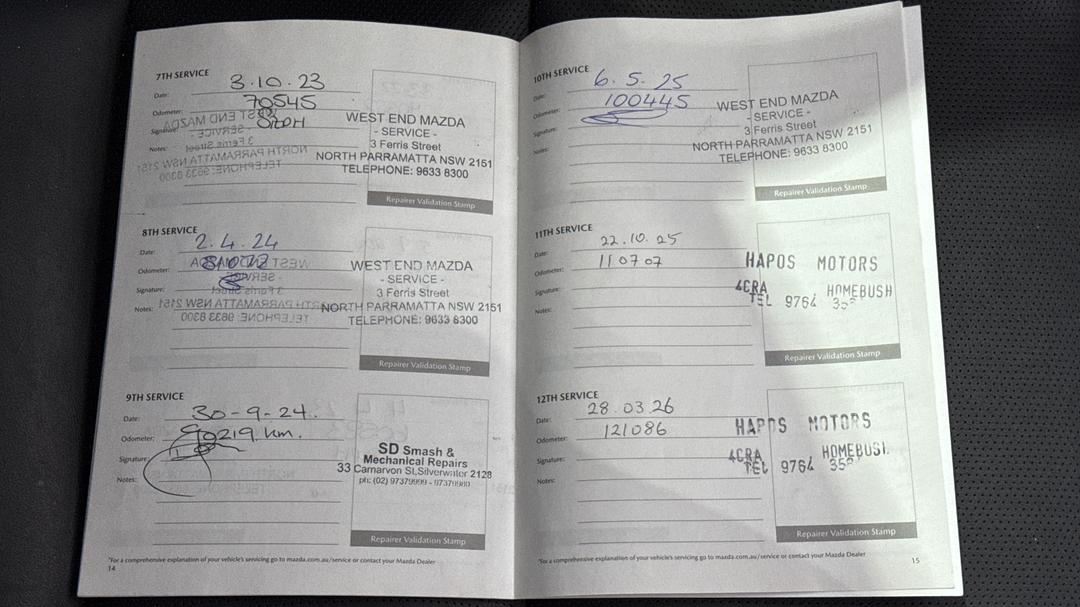 7TH SERVICE
Date: 3.10.23
Odometer: 70545
Signature:
Notes:
WEST END MAZDA
- SERVICE -
3 Ferris Street
NORTH PARRAMATTA NSW 2151
TELEPHONE: 9633 8300
Repairer Validation Stamp
8TH SERVICE
Date: 2.4.24
Odometer:
Signature:
Notes:
WEST END MAZDA
- SERVICE -
3 Ferris Street
NORTH PARRAMATTA NSW 2151
TELEPHONE: 9633 8300
Repairer Validation Stamp
9TH SERVICE
Date: 30-9-24.
Odometer: 90219.km.
Signature:
Notes:
SD Smash &
Mechanical Repairs
33 Carnarvon St,Silverwater 2128
ph: (02) 97379999 - 97379980
Repairer Validation Stamp
*For a comprehensive explanation of your vehicle's servicing go to mazda.com.au/service or contact your Mazda Dealer
14
10TH SERVICE
Date: 6.5.25
Odometer: 100445
Signature:
Notes:
WEST END MAZDA
- SERVICE -
3 Ferris Street
NORTH PARRAMATTA NSW 2151
TELEPHONE: 9633 8300
Repairer Validation Stamp
11TH SERVICE
Date: 22.10.25
Odometer: 110707
Signature:
Notes:
HAPOS MOTORS
HOMEBUSH
TEL 9764
Repairer Validation Stamp
12TH SERVICE
Date: 28.03.26
Odometer: 121086
Signature:
Notes:
HAPOS MOTORS
TEL 9764
Repairer Validation Stamp
*For a comprehensive explanation of your vehicle's servicing go to mazda.com.au/service or contact your Mazda Dealer
15